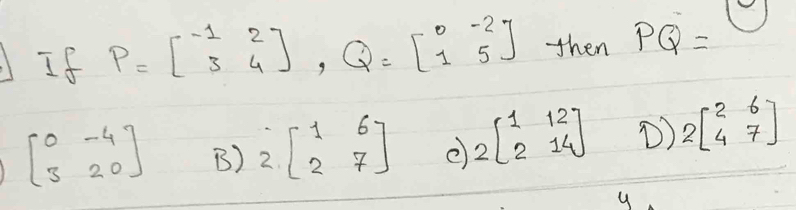 ] If P = [-1 2 3 4], Q = [0 -2 1 5] then PQ =
) [0 -4 3 20] B) 2. [1 6 2 7] c) 2 [1 12 2 14] D) 2 [2 6 4 7]
y